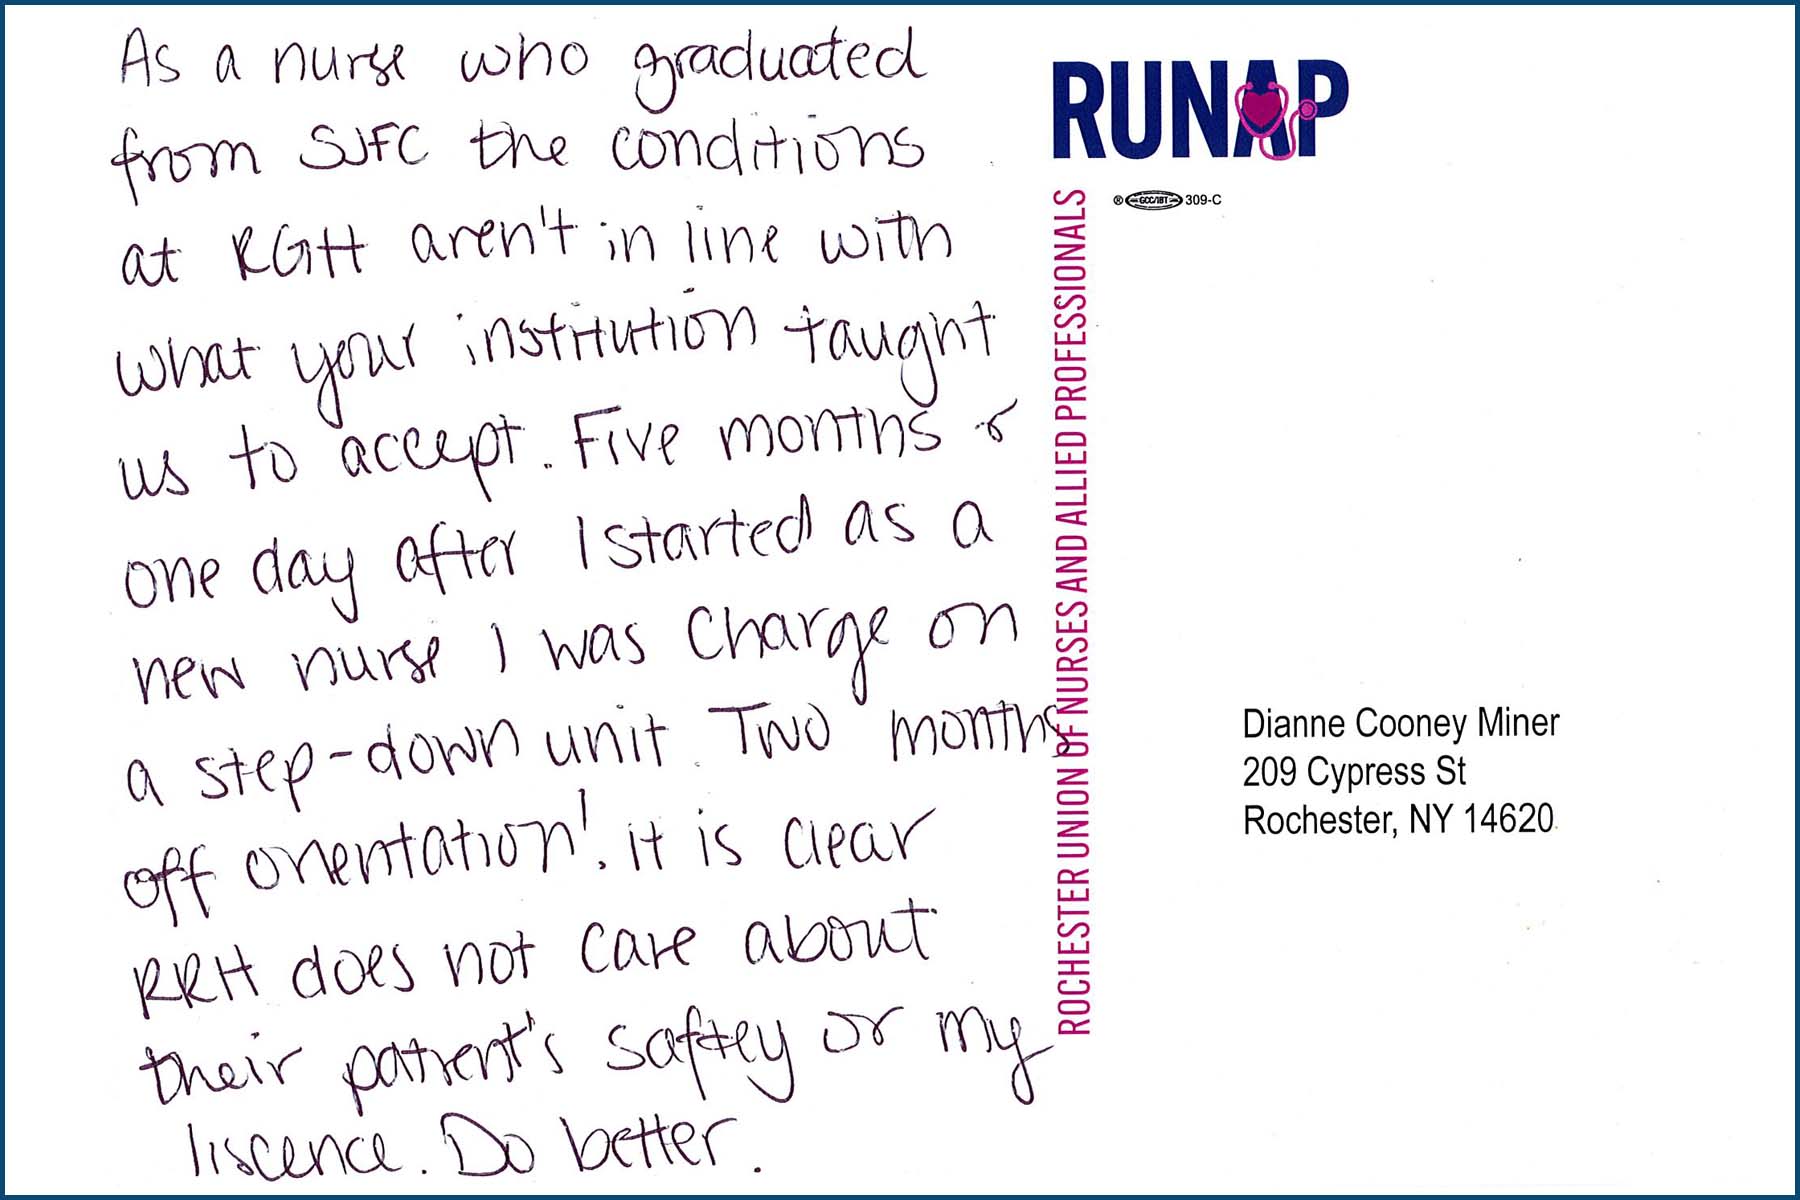 As a nurse who graduated
from SJFC the conditions
at RGH aren't in line with
what your institution taught
us to accept. Five months &
one day after I started as a
new nurse I was Charge on
a step-down unit. Two months
off orientation! it is clear
RRH does not care about
their patient's saftey or my
liscence. Do better.
RUNAP
® GCC/IBT 309-C
ROCHESTER UNION OF NURSES AND ALLIED PROFESSIONALS
Dianne Cooney Miner
209 Cypress St
Rochester, NY 14620